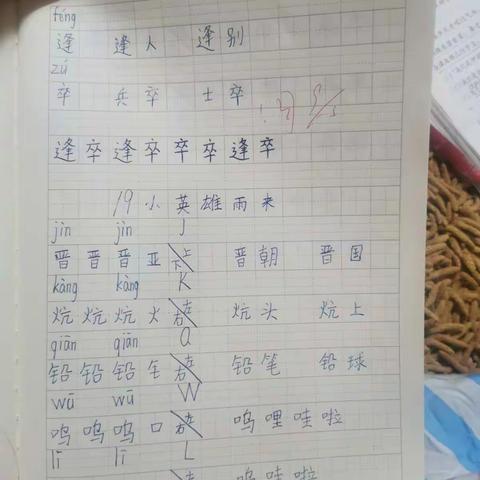 féng
逢 逢人 逢别
zú
卒 兵卒 士卒
逢卒逢卒卒卒逢卒
19 小英雄雨来
jìn jìn J
晋晋晋亚 上下 晋朝 晋国
kàng kàng K
炕炕炕火 左右 炕头 炕上
qiān qiān Q
铅铅铅钅 左右 铅笔 铅球
wū wū W
呜呜呜口 左右 呜哩哇啦
lī lī L
呜哇啦